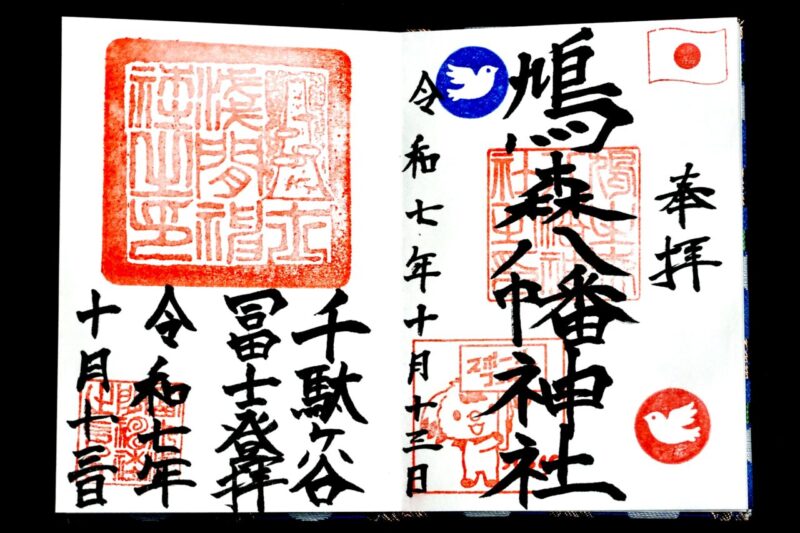 奉拝
鳩森八幡神社
令和七年十月十三日
淺間神
社之印
千駄ヶ谷
冨士登拝
令和七年
十月十三日